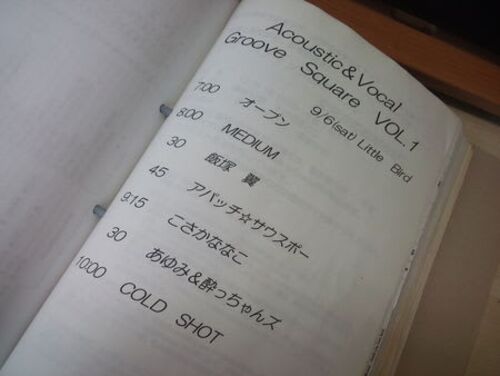 Acoustic&Vocal
Groove Square VOL.1
9/6(sat) Little Bird
7:00 オープン
8:00 MEDIUM
30 飯塚 翼
45 アパッチ☆サウスポー
9:15 こさかななこ
30 あゆみ&酔っちゃんズ
10:00 COLD SHOT